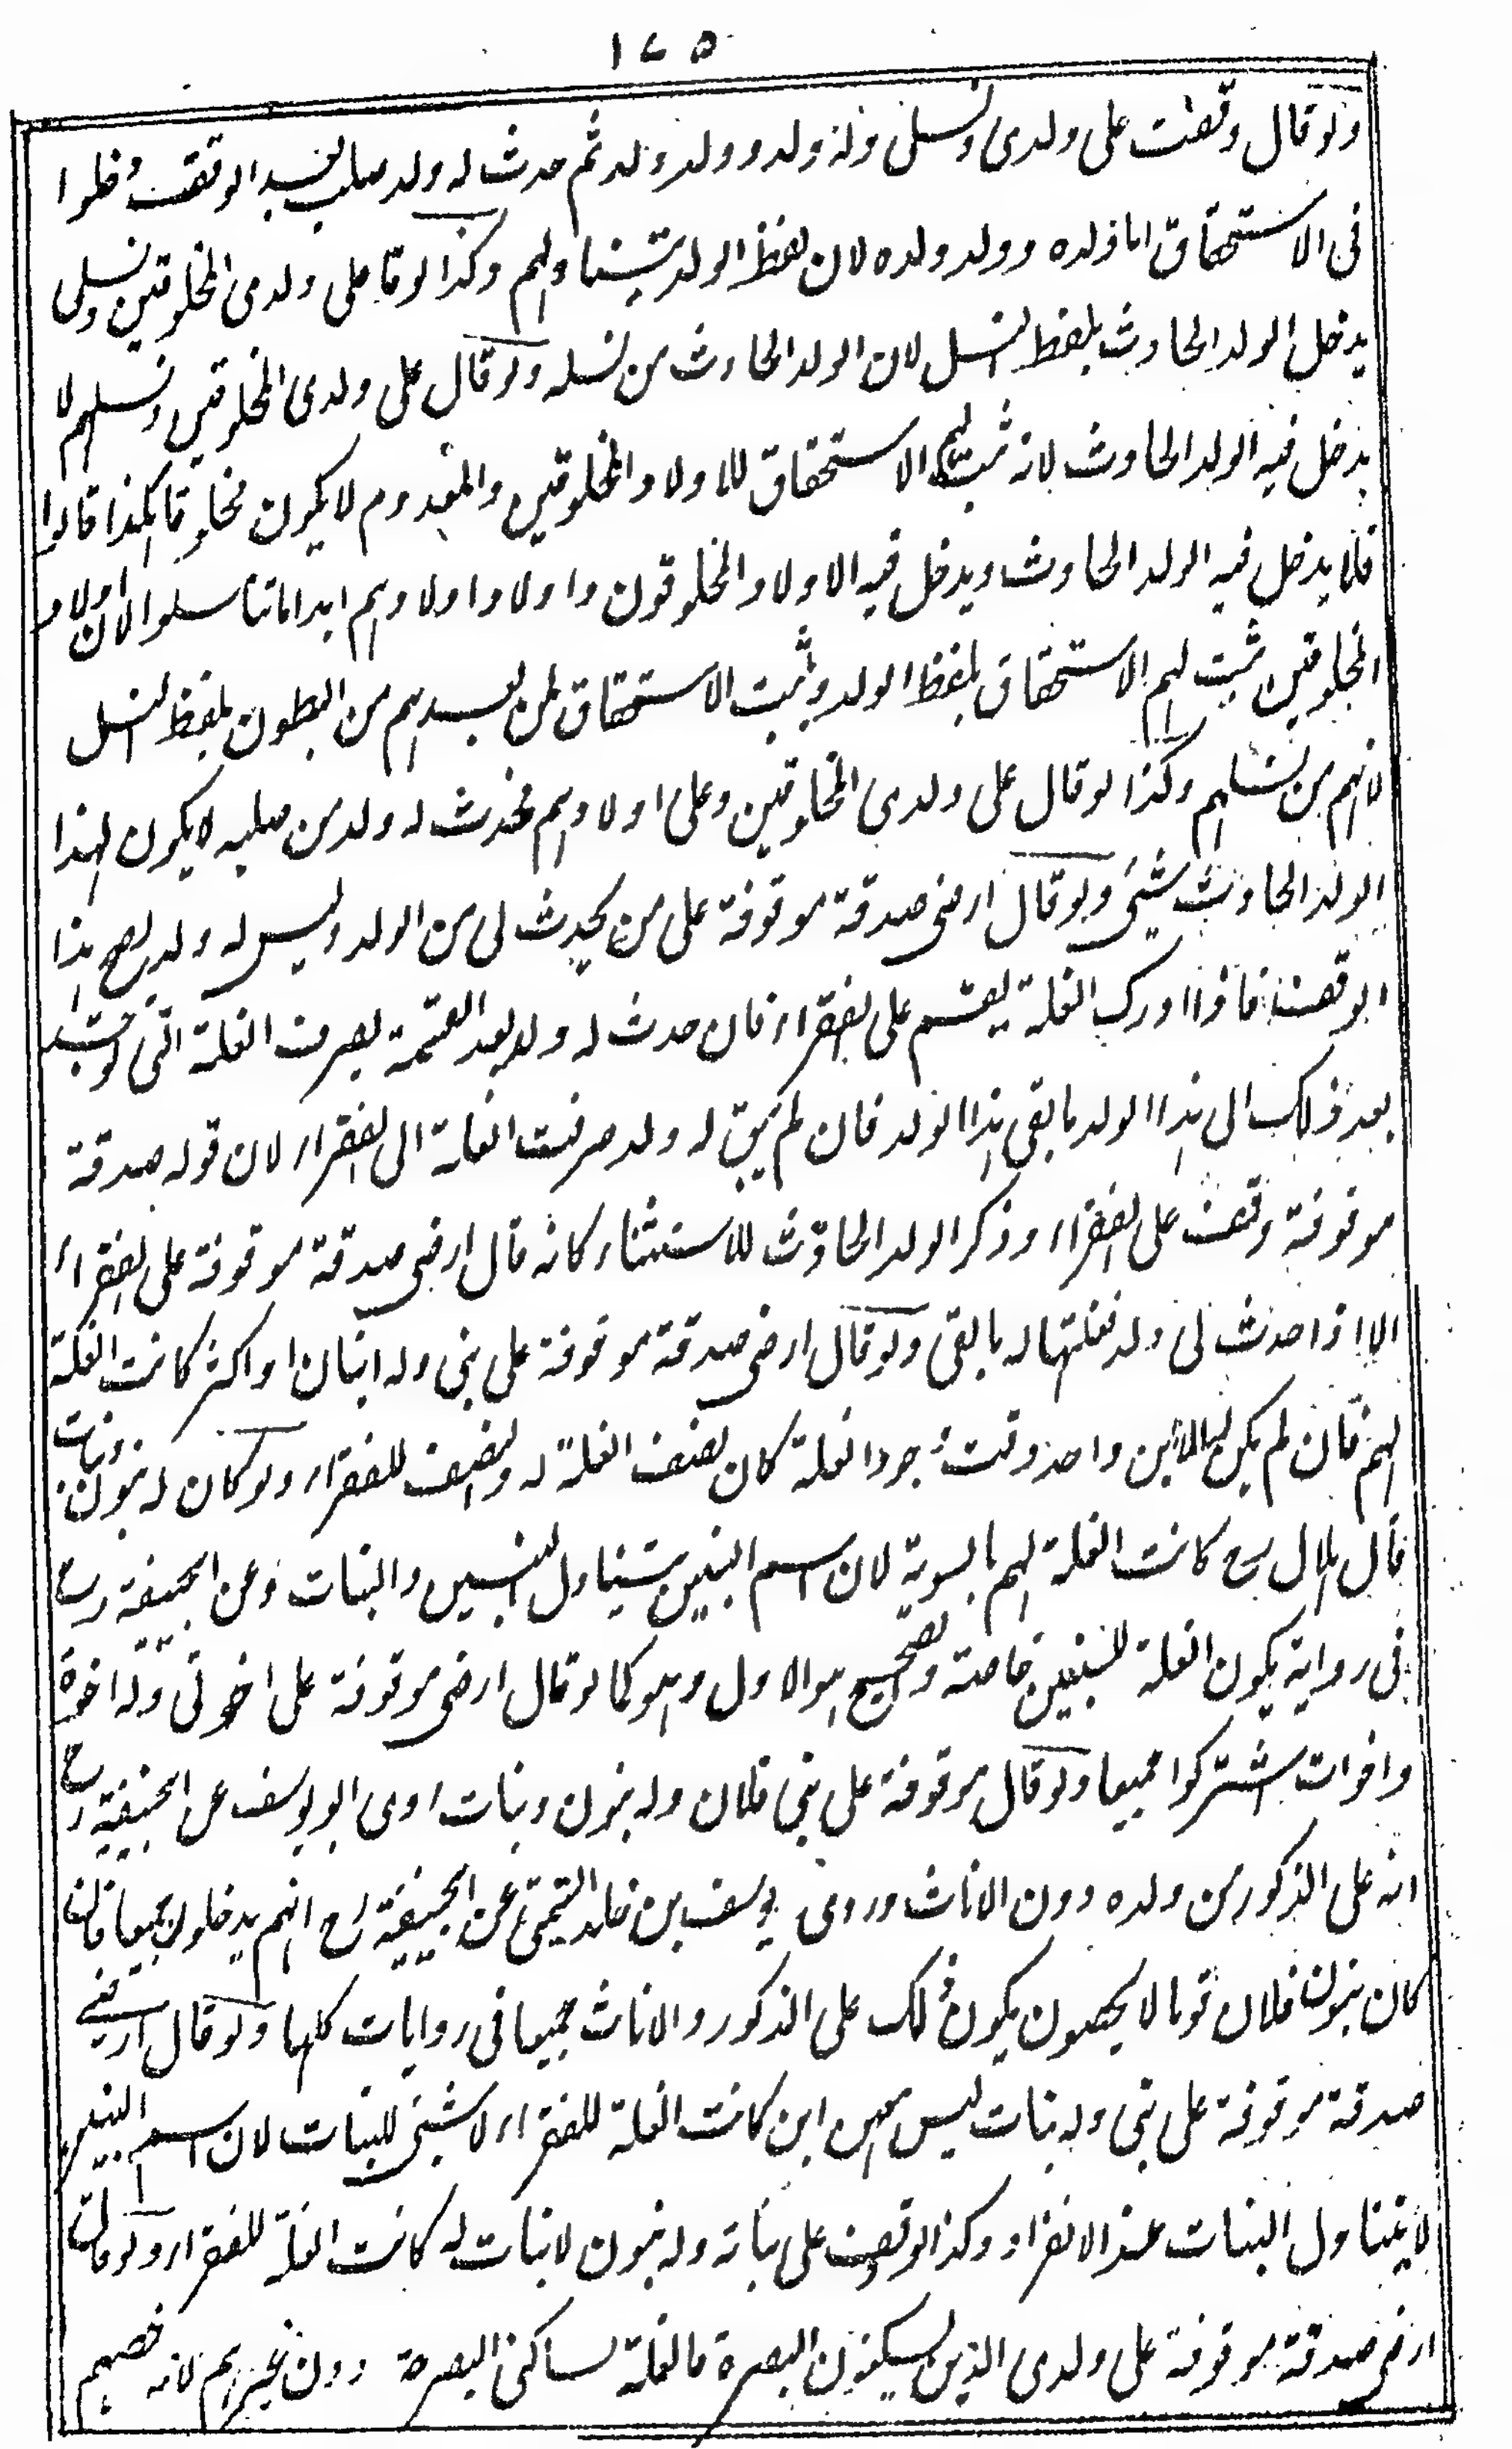 ١٧٥
ولو قال وقفت على ولدى ونسلى وله ولد وولد ولد ثم حدث له ولد صلب بعد الوقف دخلوا
فى الاستحقاق اما ولده وولد ولده لان لفظ الولد يتناولهم وكذا لو قال على ولدى المخلوقين ونسلى
يدخل الولد الحادث بلفظ النسل لان الولد الحادث من نسله ولو قال على ولدى المخلوقين ونسلهم لا
يدخل فيه الولد الحادث لانه ثبت لهم الاستحقاق للاولاد المخلوقين والمعدوم لا يكون مخلوقا هكذا قالوا
فلا يدخل فيه الولد الحادث ويدخل فيه الاولاد المخلوقون واولاد اولادهم ابدا ما تناسلوا لان اولاد
المخلوقين ثبت لهم الاستحقاق بلفظ الولد ويثبت الاستحقاق لمن بعدهم من البطون بلفظ النسل
لانهم من نسلهم وكذا لو قال على ولدى المخلوقين وعلى اولادهم فحدث له ولد من صلبه لا يكون لهذا
الولد الحادث شئ ولو قال ارضى صدقة موقوفة على من يحدث لى من الولد وليس له ولد يصح هذا
الوقف فاذا ادرك الغلة يقسم على الفقراء فان حدث له ولد بعد القسمة يصرف الغلة التى توجد
بعد ذلك الى هذا الولد ما بقى هذا الولد فان لم يبق له ولد صرفت الغلة الى الفقراء لان قوله صدقة
موقوفة وقف على الفقراء وذكر الولد الحادث للاستثناء كانه قال ارضى صدقة موقوفة على الفقراء
الا اذا حدث لى ولد فغلتها له ما بقى ولو قال ارضى صدقة موقوفة على بنى وله ابنان او اكثر كانت الغلة
لهم فان لم يكن له الا ابن واحد وقت وجود الغلة كان نصف الغلة له والنصف للفقراء ولو كان له بنون وبنات
قال هلال رح كانت الغلة لهم بالسوية لان اسم البنين يتناول البنين والبنات وعن ابى حنيفة رح
فى رواية يكون الغلة للبنين خاصة والصحيح هو الاول وهو كما لو قال ارضى موقوفة على اخوتى وله اخوة
واخوات اشتركوا جميعا ولو قال موقوفة على بنى فلان وله بنون وبنات روى ابو يوسف عن ابى حنيفة رح
انه على الذكور من ولده دون الاناث وروى يوسف بن خالد السمتى عن ابى حنيفة رح انهم يدخلون جميعا فان
كان بنون فلان قوما لا يحصون يكون ذلك على الذكور والاناث جميعا فى روايات كلها ولو قال ارضى
صدقة موقوفة على بنى وله بنات ليس معهن ابن كانت الغلة للفقراء لا شئ للبنات لان اسم البنين
لا يتناول البنات عند الانفراد وكذا لو وقف على بناته وله بنون لا بنات له كانت الغلة للفقراء ولو قال
ارضى صدقة موقوفة على ولدى الذين يسكنون البصرة فالغلة لساكنى البصرة دون غيرهم لانه خصهم